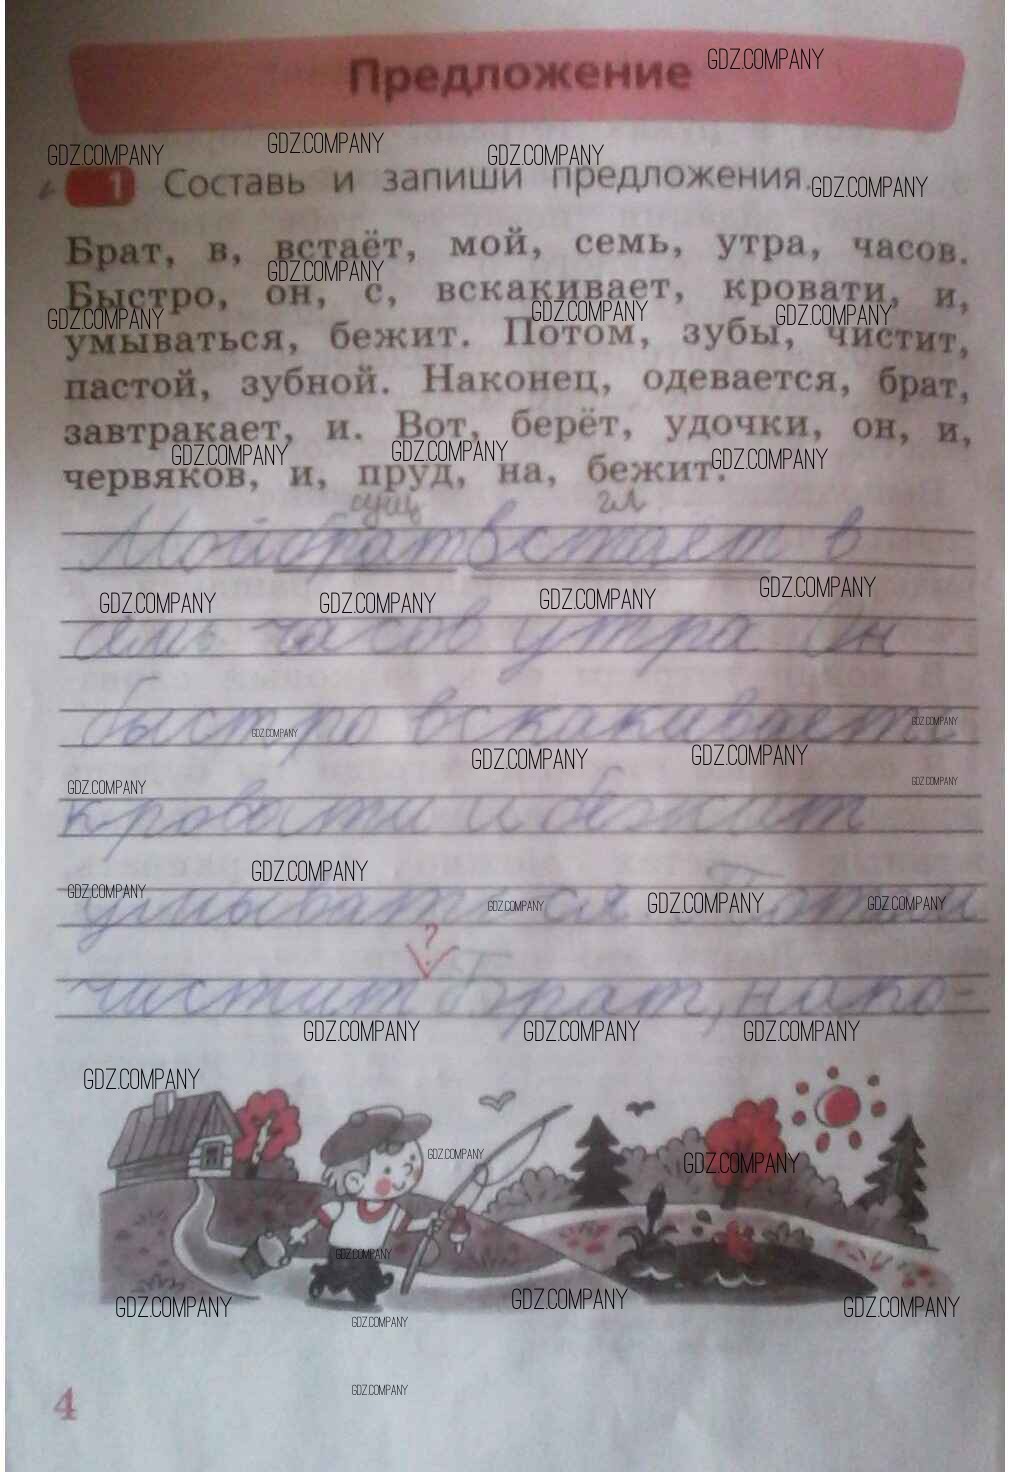 Предложение
1 Составь и запиши предложения.
Брат, в, встаёт, мой, семь, утра, часов.
Быстро, он, с, вскакивает, кровати, и,
умываться, бежит. Потом, зубы, чистит,
пастой, зубной. Наконец, одевается, брат,
завтракает, и. Вот, берёт, удочки, он, и,
червяков, и, пруд, на, бежит.
сущ гл
Мой брат встает в
семь часов утра Он
быстро вскакивает с
кровати и бежит
умываться Потом
?
чистит Брат, нако-
4
GDZ.COMPANY